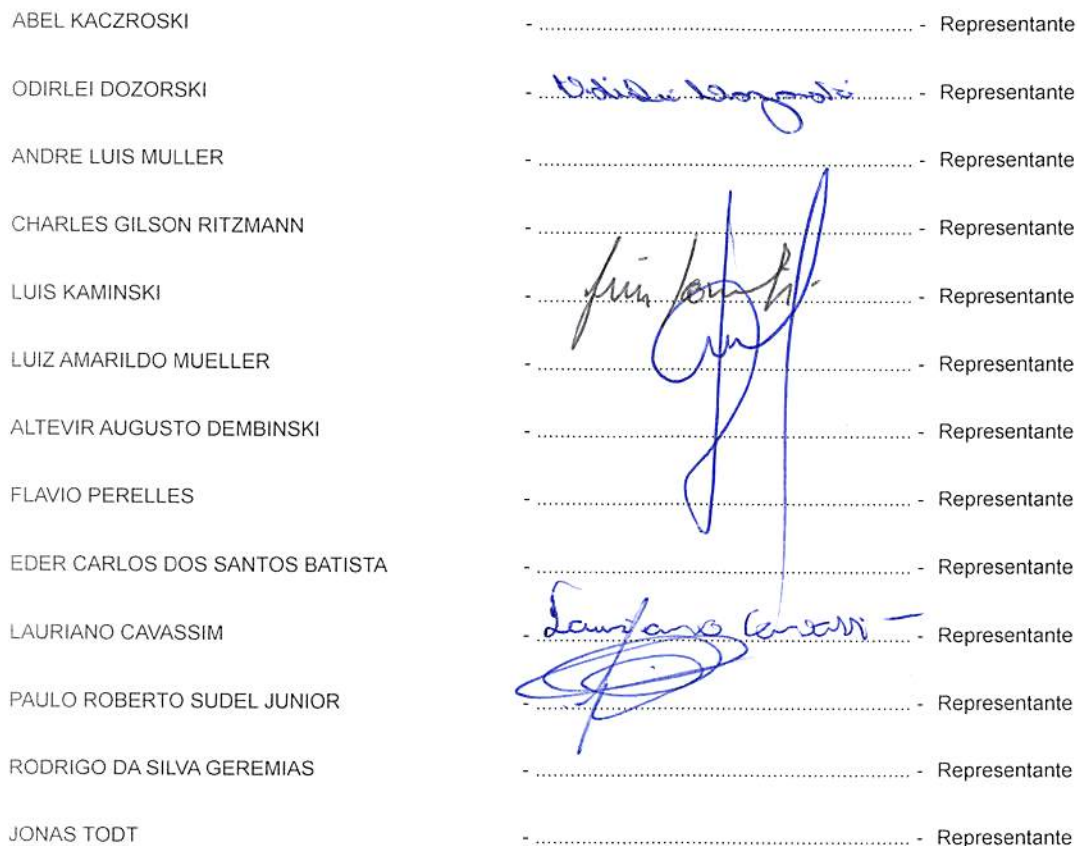 ABEL KACZROSKI - ........ - Representante
ODIRLEI DOZORSKI - Odirlei Dozorski - Representante
ANDRE LUIS MULLER - ........ - Representante
CHARLES GILSON RITZMANN - ........ - Representante
LUIS KAMINSKI - ........ - Representante
LUIZ AMARILDO MUELLER - ........ - Representante
ALTEVIR AUGUSTO DEMBINSKI - ........ - Representante
FLAVIO PERELLES - ........ - Representante
EDER CARLOS DOS SANTOS BATISTA - ........ - Representante
LAURIANO CAVASSIM - Lauriano - Representante
PAULO ROBERTO SUDEL JUNIOR - ........ - Representante
RODRIGO DA SILVA GEREMIAS - ........ - Representante
JONAS TODT - ........ - Representante